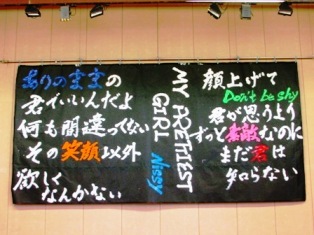 ありのままの
君でいいんだよ
何も間違ってない
その笑顔以外
欲しく
なんかない
MY PRETTIEST
GIRL Nissy
顔上げて
Don't be shy
君が思うより
ずっと素敵なのに
まだ君は
知らない